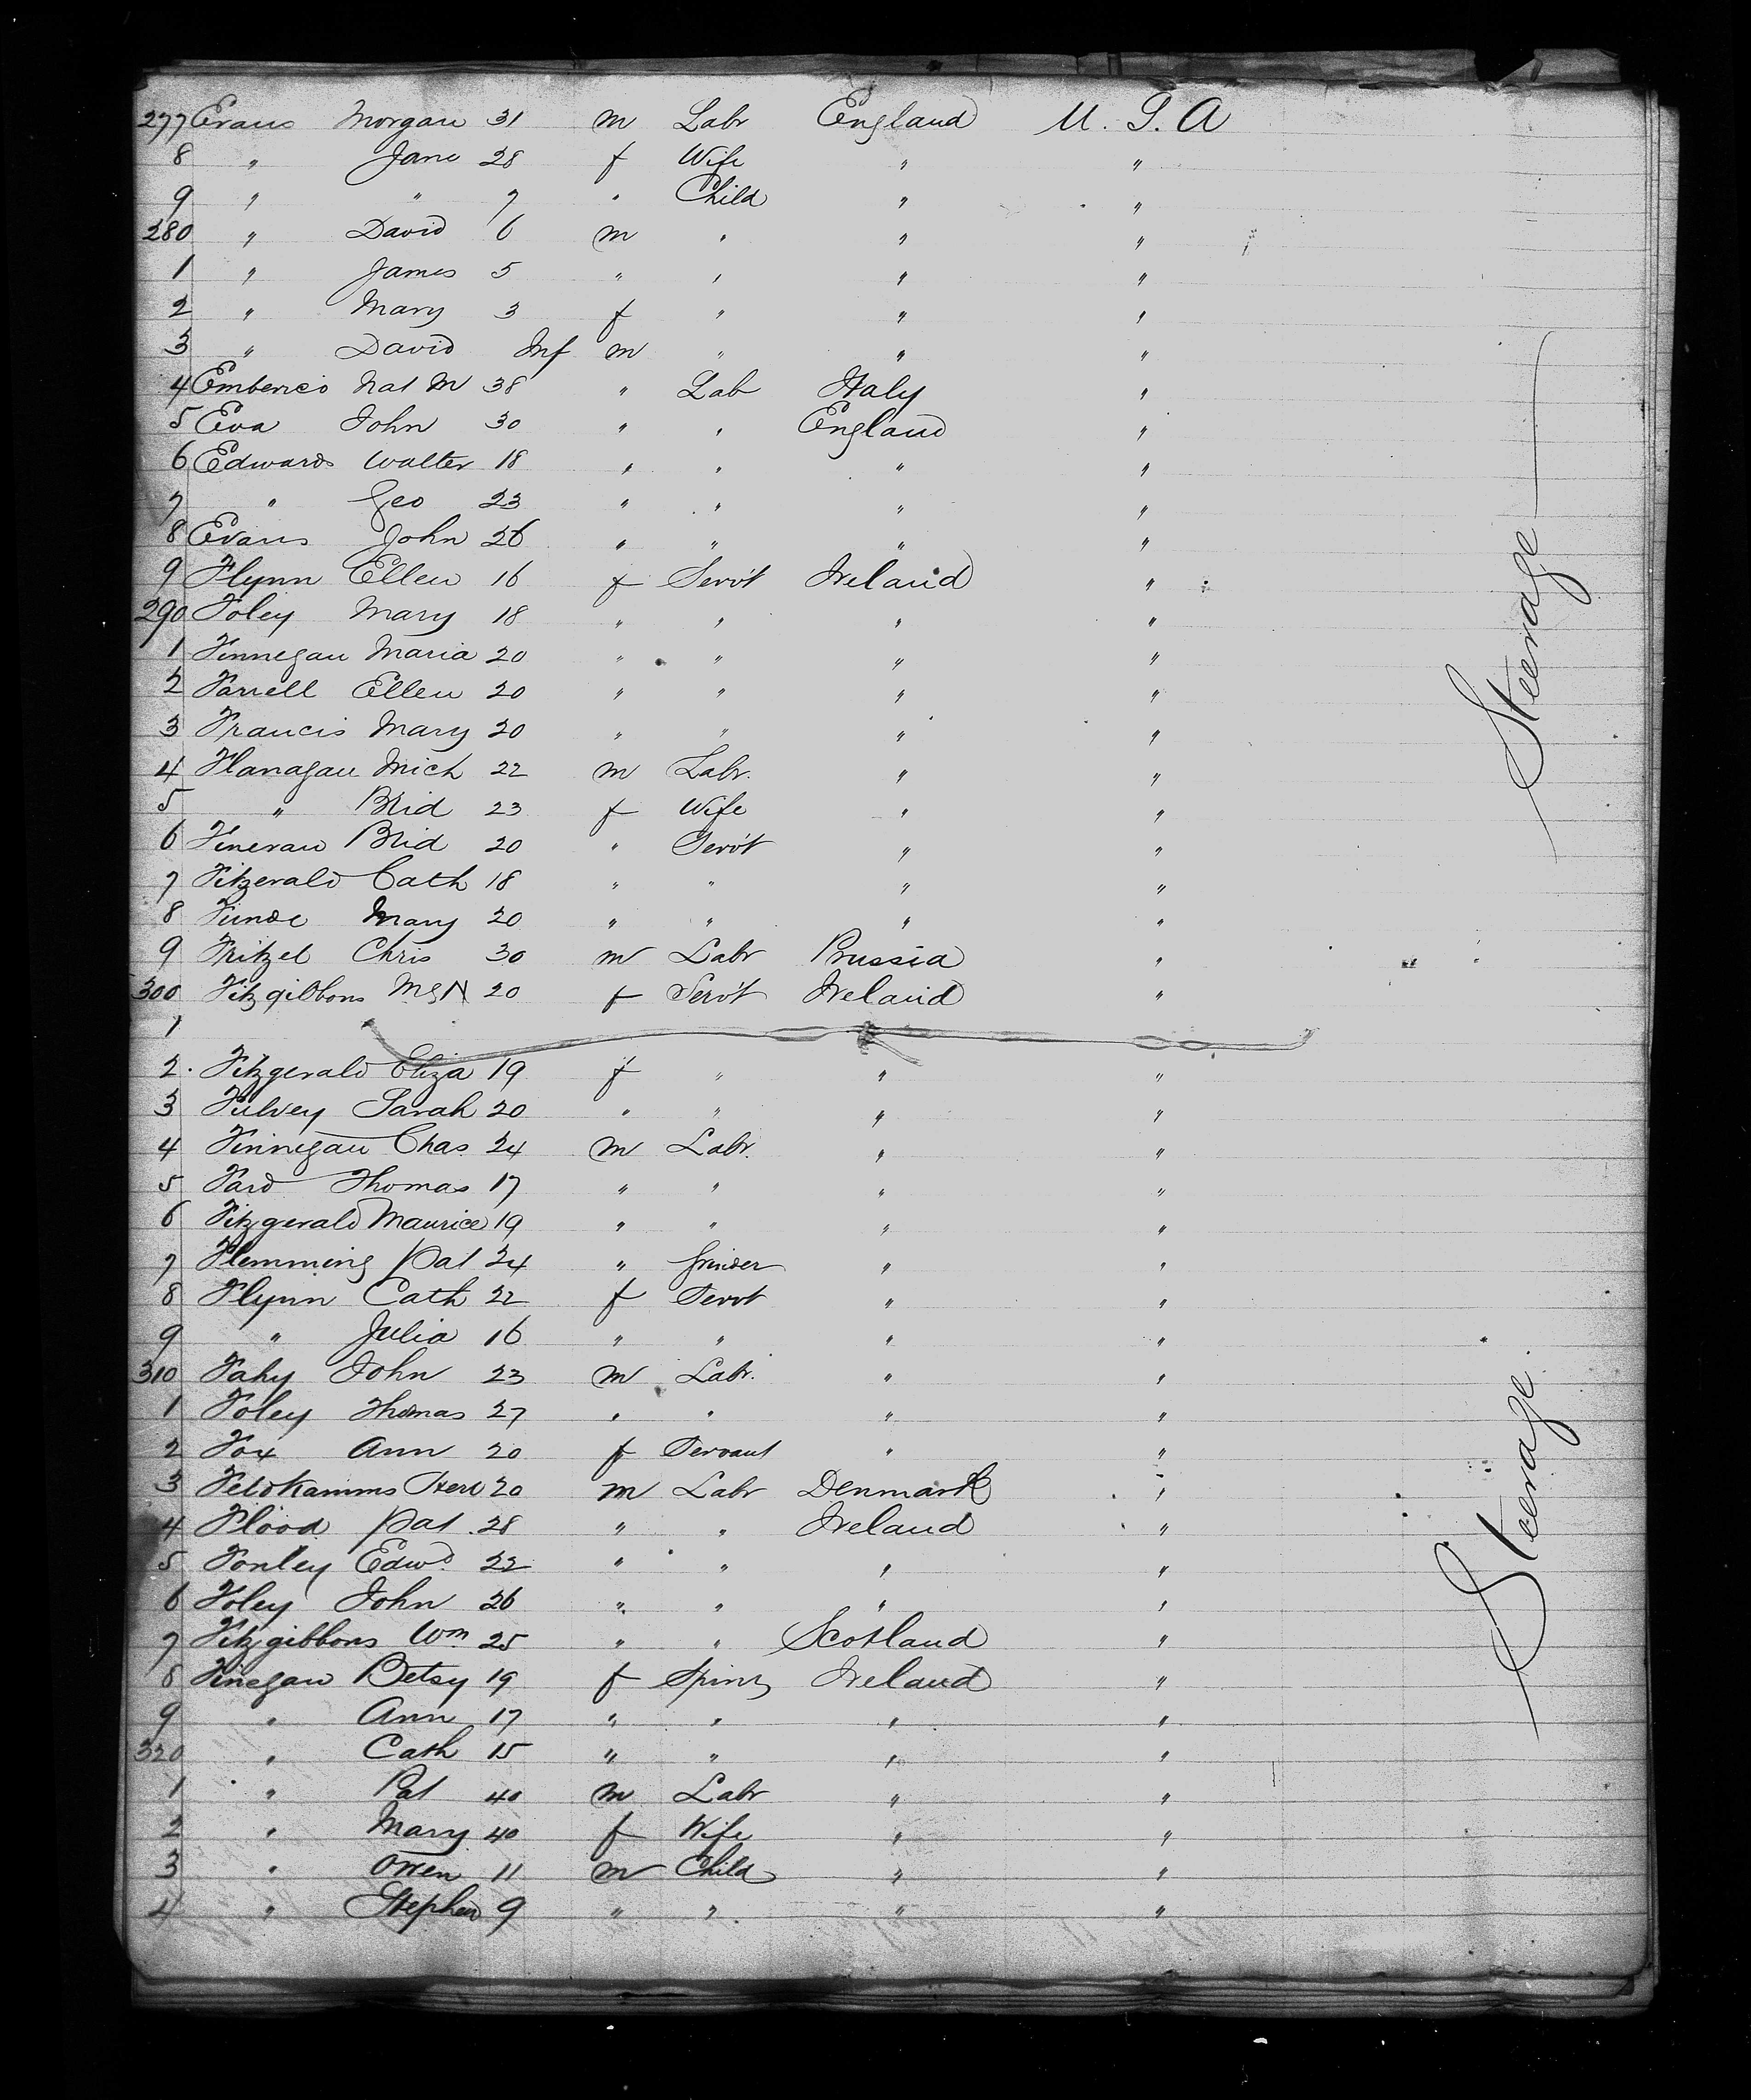 277 Evans Morgan 31 m Labr England U. S. A
8 " Jane 28 f Wife " "
9 " " 7 " Child " "
280 " David 6 m " " "
1 " James 5 " " " "
2 " Mary 3 f " " "
3 " David Inf m " " "
4 Nat M 38 " Lab Italy "
5 Eva John 30 " " England "
6 Edwards Walter 18 " " " "
7 " Geo 23 " " " "
8 Evans John 26 " " " "
9 Flynn Ellen 16 f Servt Ireland "
290 Foley Mary 18 " " " "
1 Finnegan Maria 20 " " " "
2 Farrell Ellen 20 " " " "
3 Francis Mary 20 " " " "
4 Flanagan Mich 22 m Labr. " "
5 " Brid 23 f Wife " "
6 Fineran Brid 20 " Servt " "
7 Fitzerald Cath 18 " " " "
8 Mary 20 " " " "
9 Fritzel Chris 30 m Labr Prussia "
300 Fitzgibbons 20 f Servt Ireland "
1
2. Fitzgerald Eliza 19 f " " "
3 Fulvey Sarah 20 " " " "
4 Finnegan Chas 24 m Labr. " "
5 Ford Thomas 17 " " " "
6 Fitzgerald Maurice 19 " " " "
7 Flemming Pat 24 " Grinder " "
8 Flynn Cath 22 f Servt " "
9 " Julia 16 " " " "
310 Fahy John 23 m Labr. " "
1 Foley Thomas 27 " " " "
2 Fox Ann 20 f Servant " "
3 Feldkamms 20 m Labr Denmark "
4 Flood Pat 28 " " Ireland "
5 Fonley Edwd. 22 " " " "
6 Foley John 26 " " " "
7 Fitzgibbons Wm 25 " " Scotland "
8 Finegan Betsy 19 f Spinr Ireland "
9 " Ann 17 " " " "
320 " Cath 15 " " " "
1 " Pat 40 m Labr " "
2 " Mary 40 f Wife " "
3 " Owen 11 m Child " "
4 " Stephen 9 " " " "
Steerage
Steerage.